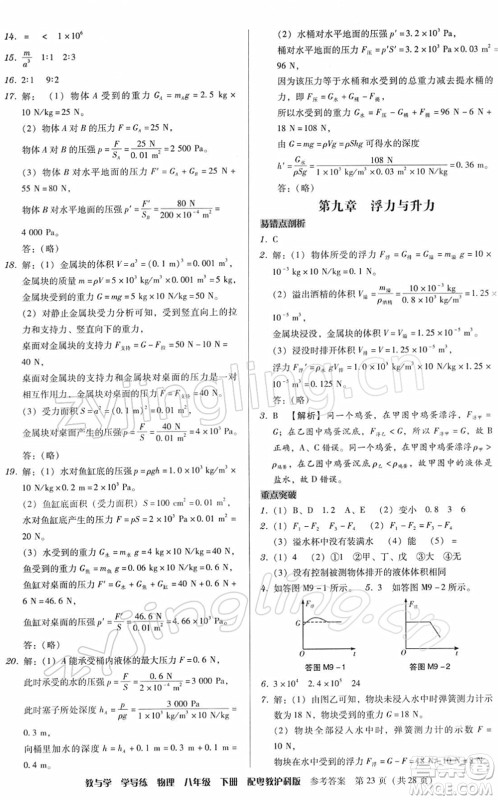 14. = < 1×10⁶
15. m/a³ 1:1 2:3
16. 2:1 9:2
17. 解：(1) 物体 A 受到的重力 G_A = m_A g = 2.5 kg
×10 N/kg = 25 N。
(2) 物体 A 对 B 的压力 F = G_A = 25 N，
物体 A 对 B 的压强 p = F/S_A = 25 N/0.01 m² = 2 500 Pa。
(3) 物体 B 对水平地面的压力 F' = G_A + G_B = 25 N
+ 55 N = 80 N，
物体 B 对水平地面的压强 p' = F'/S_B = 80 N/200×10⁻⁴ m² =
4 000 Pa。
答：(略)
18. 解：(1) 金属块的体积 V = a³ = (0.1 m)³ = 0.001 m³，
金属块的质量 m = ρV = 5×10³ kg/m³×0.001 m³ = 5 kg，
金属块受到的重力 G = mg = 5 kg×10 N/kg = 50 N。
(2) 对静止金属块受力分析可知，受到竖直向上的拉
力、支持力，竖直向下的重力，
桌面对金属块的支持力 F支持 = G − F = 50 N − 10 N =
40 N，
桌面对金属块的支持力和金属块对桌面的压力是一
对相互作用力，大小相等，为 40 N。
(3) 受力面积 S = a² = (0.1 m)² = 0.01 m²，
金属块对桌面产生的压强 p = F/S = 40 N/0.01 m² = 4 000 Pa。
答：(略)
19. 解：(1) 水对鱼缸底的压强 p = ρgh = 1.0×10³ kg/m³
×10 N/kg×0.2 m = 2×10³ Pa。
(2) 鱼缸底面积（受力面积）S = 100 cm² = 0.01 m²，
水对鱼缸底的压力 F = pS = 2×10³ Pa×0.01 m² =
20 N。
(3) 水受到的重力 G水 = m水 g = 4 kg×10 N/kg = 40 N，
鱼受到的重力 G鱼 = m鱼 g = 0.06 kg×10 N/kg = 0.6 N，
鱼缸受到的重力 G缸 = m缸 g = 0.6 kg×10 N/kg = 6 N，
鱼缸对桌面的压力 F' = G水 + G鱼 + G缸 = 40 N + 0.6 N
+ 6 N = 46.6 N，
鱼缸对桌面的压强 p' = F'/S = 46.6 N/0.01 m² = 4.66×10³ Pa。
答：(略)
20. 解：(1) A 能承受桶内液体的最大压力 F = 0.6 N，
此时承受的压强 p = F/S = 0.6 N/2×10⁻⁴ m² = 3 000 Pa，
此时塞子所处深度 h = p/ρg = 3 000 Pa/1×10³ kg/m³×10 N/kg =
0.3 m，
向桶里所加水的深度 h水 = h + 0.1 m = 0.3 m + 0.1 m =
0.4 m。
(2) 水桶对水平地面的压强 p' = 3.2×10³ Pa，
桶对水平地面的压力 F压 = p'S = 3.2×10³ Pa×0.03 m² =
96 N，
因为该压力等于水和桶的总重力减去提水桶的力，
即 F压 = G水 + G桶 − F提，
所以水受到的重力 G水 = F压 − G桶 + F提 = 96 N − 6 N +
18 N = 108 N，
由 G = mg = ρVg = ρShg 可得水的深度
h' = G水/ρSg = 108 N/1×10³ kg/m³×0.03 m²×10 N/kg = 0.36 m。
答：(略)
第九章 浮力与升力
易错点剖析
1. C
2. 解：(1) 物体所受的浮力 F浮 = G排 = m排 g = 10×
10⁻³ kg×10 N/kg = 0.1 N。
(2) 溢出酒精的体积 V排 = m溢/ρ酒精 = 10×10⁻³ kg/0.8×10³ kg/m³ =
1.25×10⁻⁵ m³，
金属块浸没，金属块的体积 V金 = V排 = 1.25×10⁻⁵ m³。
(3) 浸没时排开水的体积 V排水 = V金 = 1.25×10⁻⁵ m³，
浮力 F浮' = ρ水 gV排水 = 1×10³ kg/m³×10 N/kg×1.25×
10⁻⁵ m³ = 0.125 N。
答：(略)
3. B 【解析】同一个鸡蛋，在甲图中鸡蛋漂浮，
在乙图中鸡蛋沉底，
故 B 正确，
A、C 错误。同一个鸡蛋，在甲图中鸡蛋漂浮，
在乙图中鸡蛋沉底，
故 D 错误。
重点突破
1. (1) B、D (2) 1.2 (3) A、B (4) 0.8 3 6
2. (1) F₁ − F₂ (2) F₁ − F₂ F₃ − F₄
(3) 溢水杯中没有装满水 (4) 能 (5) =
3. (1) 4 (2) 浮力大小 (3) ① 甲、丁、戊 ② 无关
(3) 没有控制被测物体排开的液体体积相同
4. 如答图 M9-1 所示。 5. 3 如答图 M9-2 所示。
F浮 O t
答图 M9-1
F浮 O t
答图 M9-2
6. 3×10⁴ 2.4×10⁵ 24
7. 解：(1) 由图乙可知，物块未浸入水中时弹簧测力计示
数为
物块浸没在水中时弹簧测力计
教与学 学导练 物理 八年级 下册 配粤教沪科版 参考答案 第 23 页（共 28 页）
zyjingling.cn